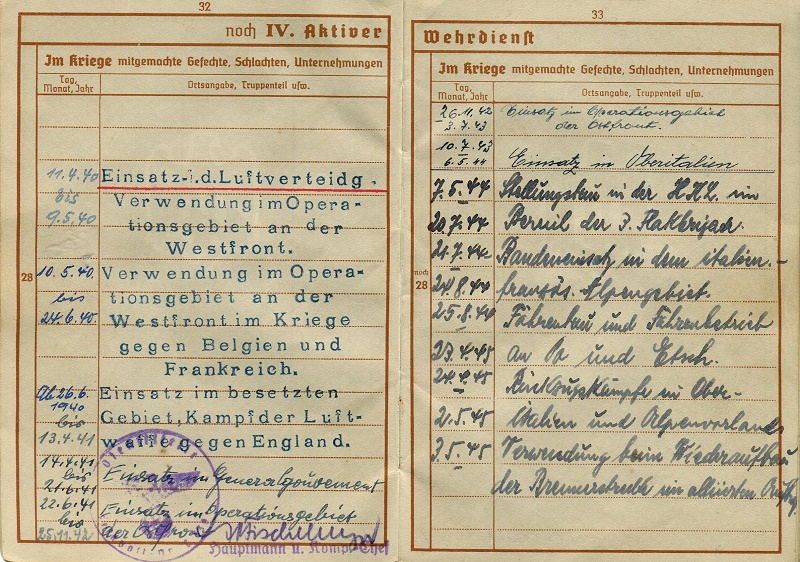 32
noch IV. Aktiver
Im Kriege mitgemachte Gefechte, Schlachten, Unternehmungen
Tag, Monat, Jahr
Ortsangabe, Truppenteil usw.
11.4.40 Einsatz i.d. Luftverteidg.
bis Verwendung im Opera-
9.5.40 tionsgebiet an der
Westfront.
28 10.5.40. Verwendung im Opera-
bis tionsgebiet an der
24.6.40. Westfront im Kriege
gegen Belgien und
Frankreich.
Ab 26.6. Einsatz im besetzten
1940 Gebiet, Kampf der Luft-
bis
13.4.41 waffe gegen England.
14.4.41
bis Einsatz im Generalgouvernement
21.6.41
22.6.41 Einsatz im Operationsgebiet
bis der Ostfront
25.11.42
Hauptmann u. Komp. Chef
33
Wehrdienst
Im Kriege mitgemachte Gefechte, Schlachten, Unternehmungen
Tag, Monat, Jahr
Ortsangabe, Truppenteil usw.
26.11.42 Einsatz im Operationsgebiet
3.7.43 der Ostfront.
10.7.43
6.5.44 Einsatz in Oberitalien
7.5.44 Stellungsbau in der H.K.L. im
20.7.44 der 3. Flakbrigade.
21.7.44 Bandeneinsatz in dem italien.-
noch 28 24.8.44 französ. Alpengebiet.
25.8.44 Fährenbau und Fährenbetrieb
23.4.45 an Po und Etsch.
24.4.45 Rückzugskämpfe in Ober-
2.5.45 italien und Alpenvorland
3.5.45 Verwendung beim Wiederaufbau
der Brennerstrecke im alliierten